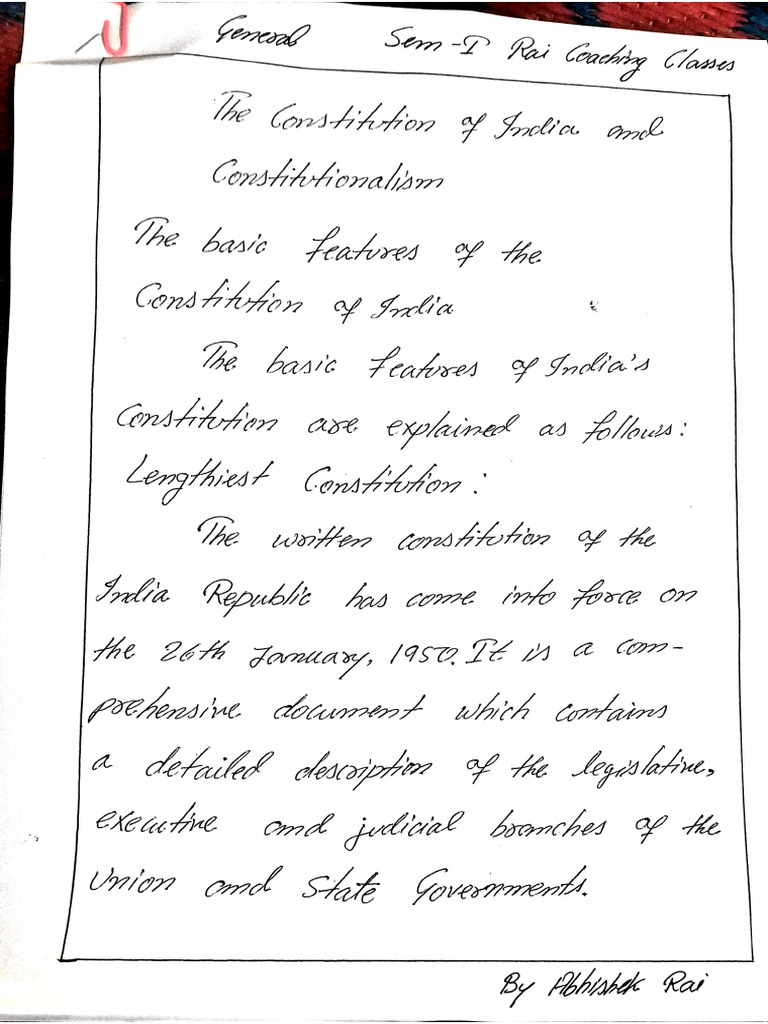 General Sem-I Rai Coaching Classes
The Constitution of India and
Constitutionalism
The basic features of the
Constitution of India
The basic features of India's
Constitution are explained as follows:
Lengthiest Constitution:
The written constitution of the
India Republic has come into force on
the 26th January, 1950. It is a com-
prehensive document which contains
a detailed description of the legislative,
executive and judicial branches of the
Union and State Governments.
By Abhishek Rai